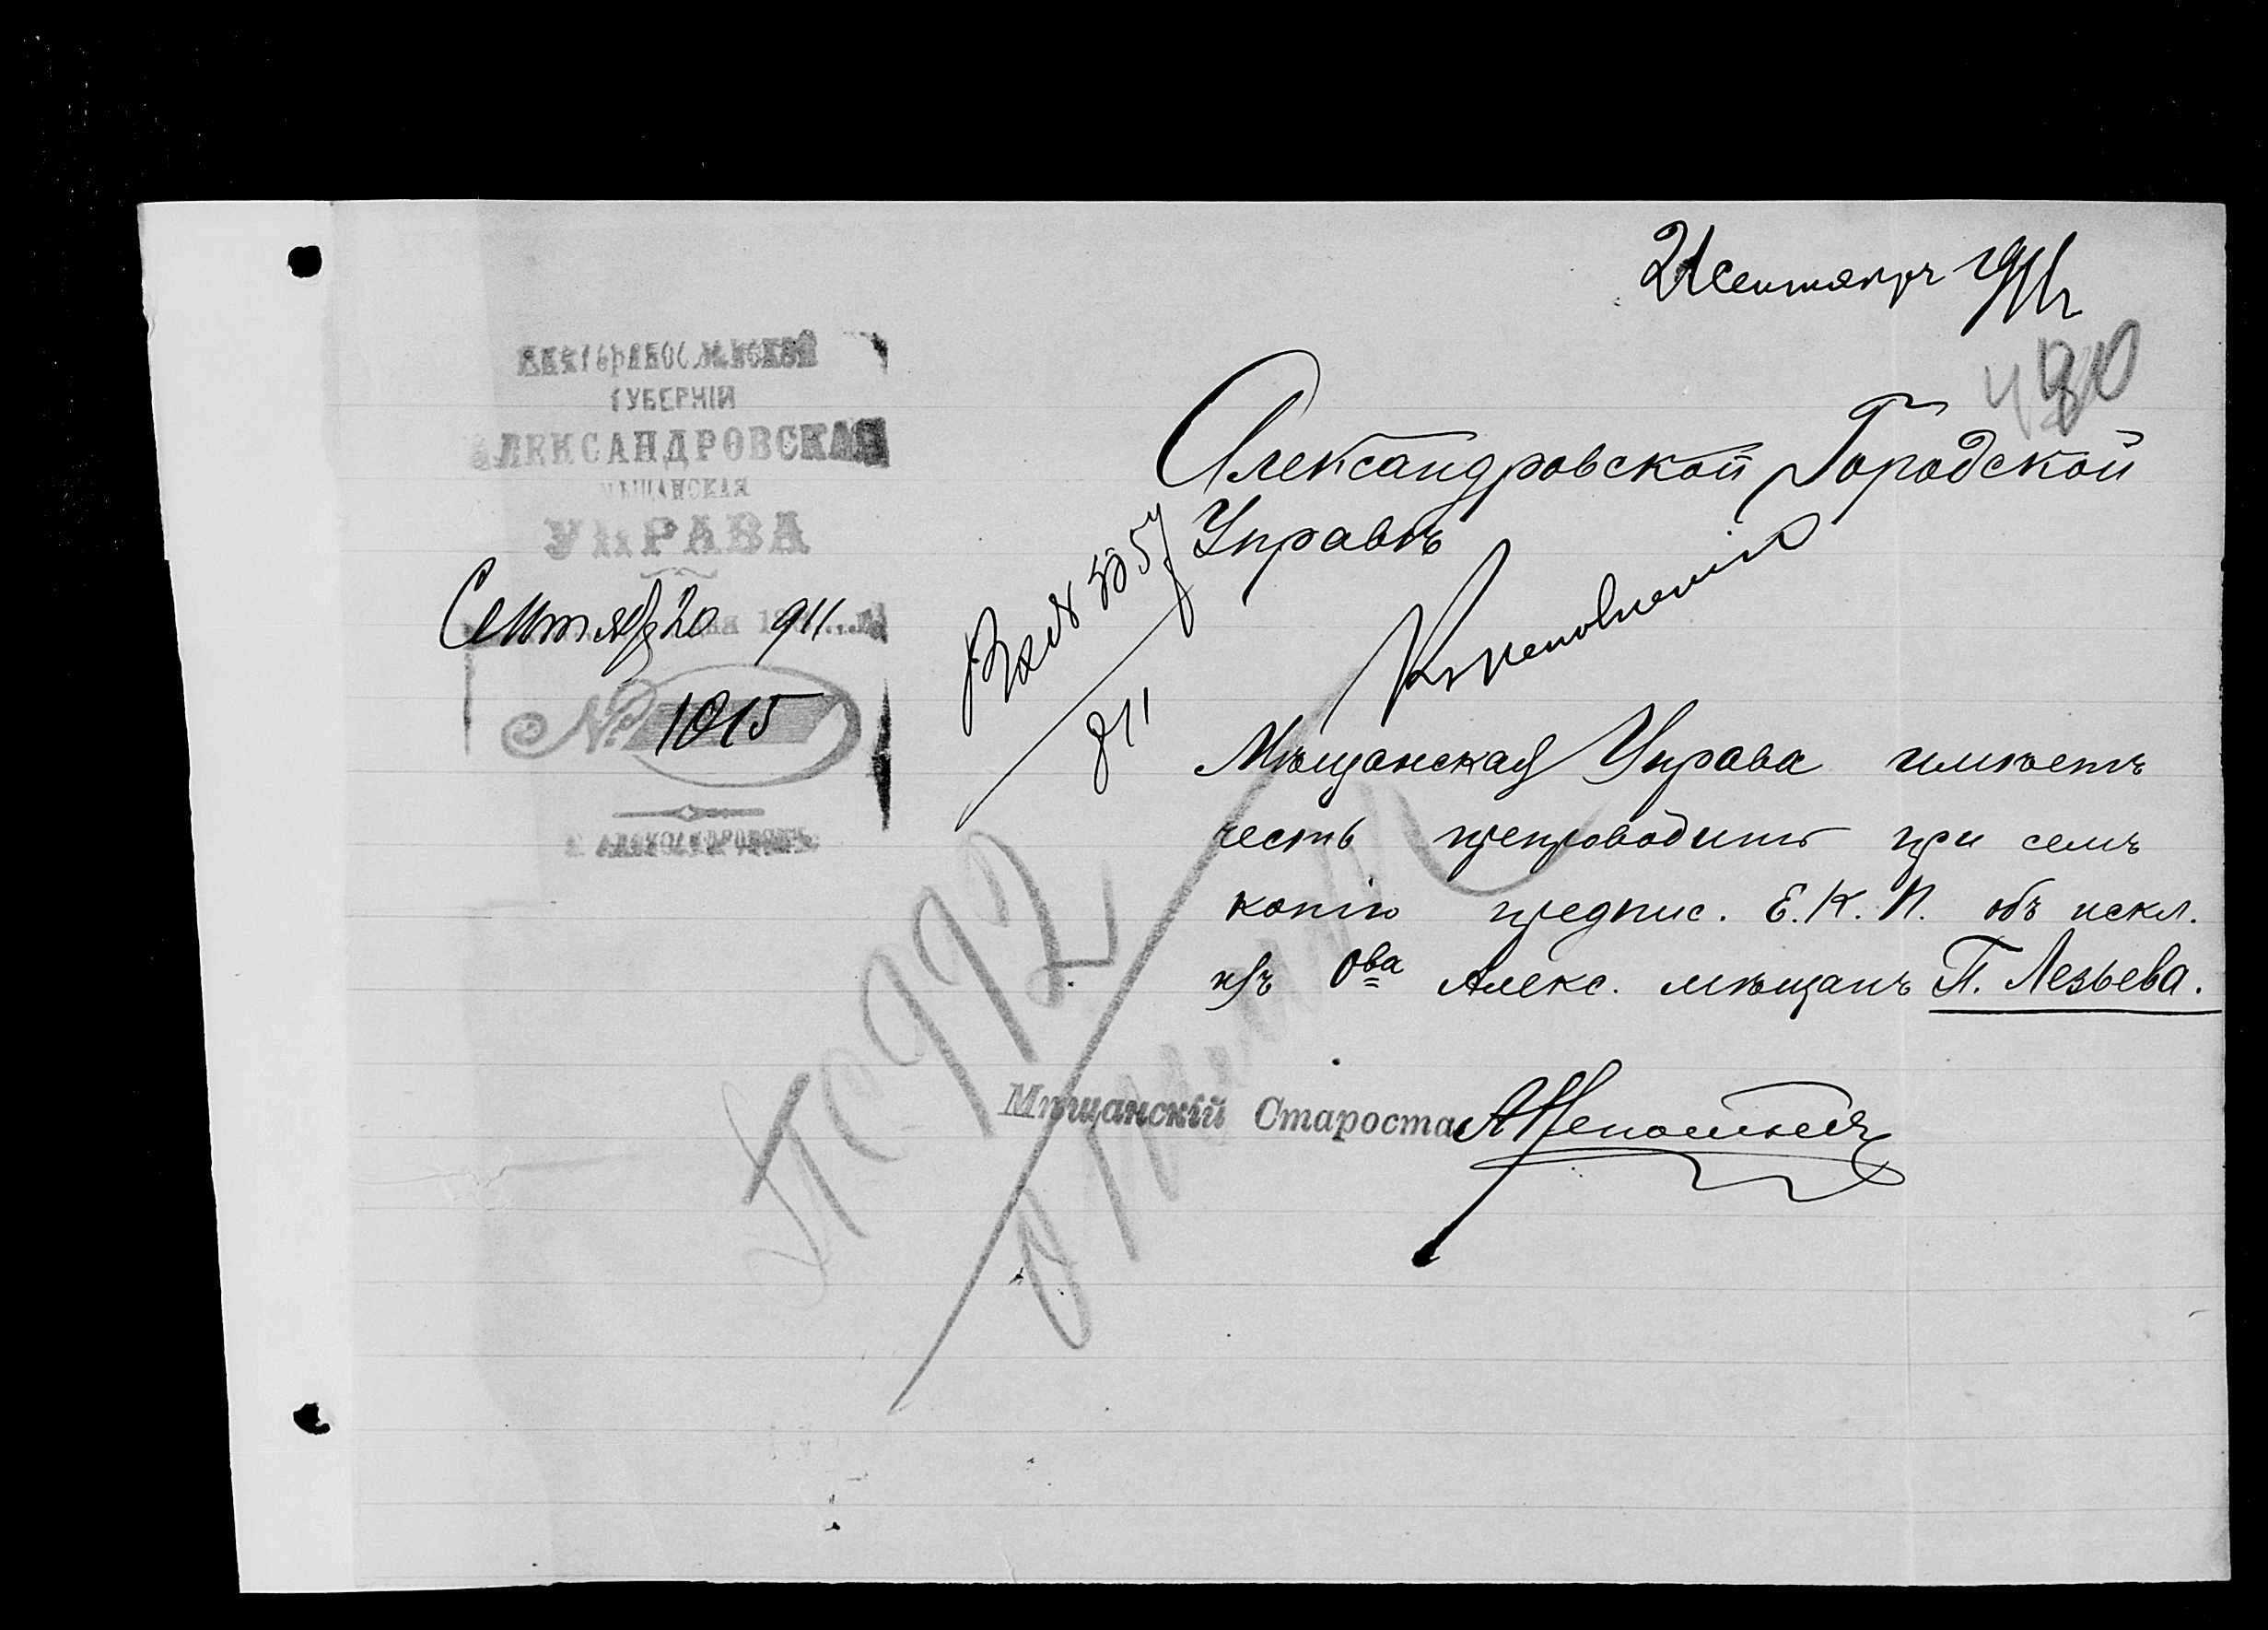 21 Сентябр 1911 г
480
ЕКАТЕРИНОСЛАВСКОЙ
ГУБЕРНІИ
АЛЕКСАНДРОВСКАЯ
МѢЩАНСКАЯ
УПРАВА
Сентяб 20 911
№ 1015
Г. АЛЕКСАНДРОВСКЪ
Александровской Городской
Управѣ
Къ исполненію
Мѣщанская Управа имѣетъ
честь препроводить при семъ
копію предпис. Е. К. П. объ искл.
изъ Ова Алекс. мѣщанъ П. Лезьева.
Мѣщанскій Староста